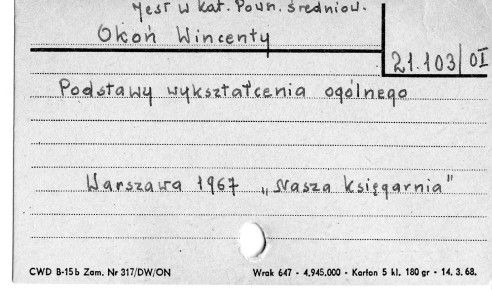 Jest w kat. Pown. średniow.
Okoń Wincenty
21.103/OI
Podstawy wykształcenia ogólnego
Warszawa 1967 „Nasza Księgarnia"
CWD B-15b Zam. Nr 317/DW/ON Wrak 647 - 4,945.000 - Karton 5 kl. 180 gr - 14.3.68.